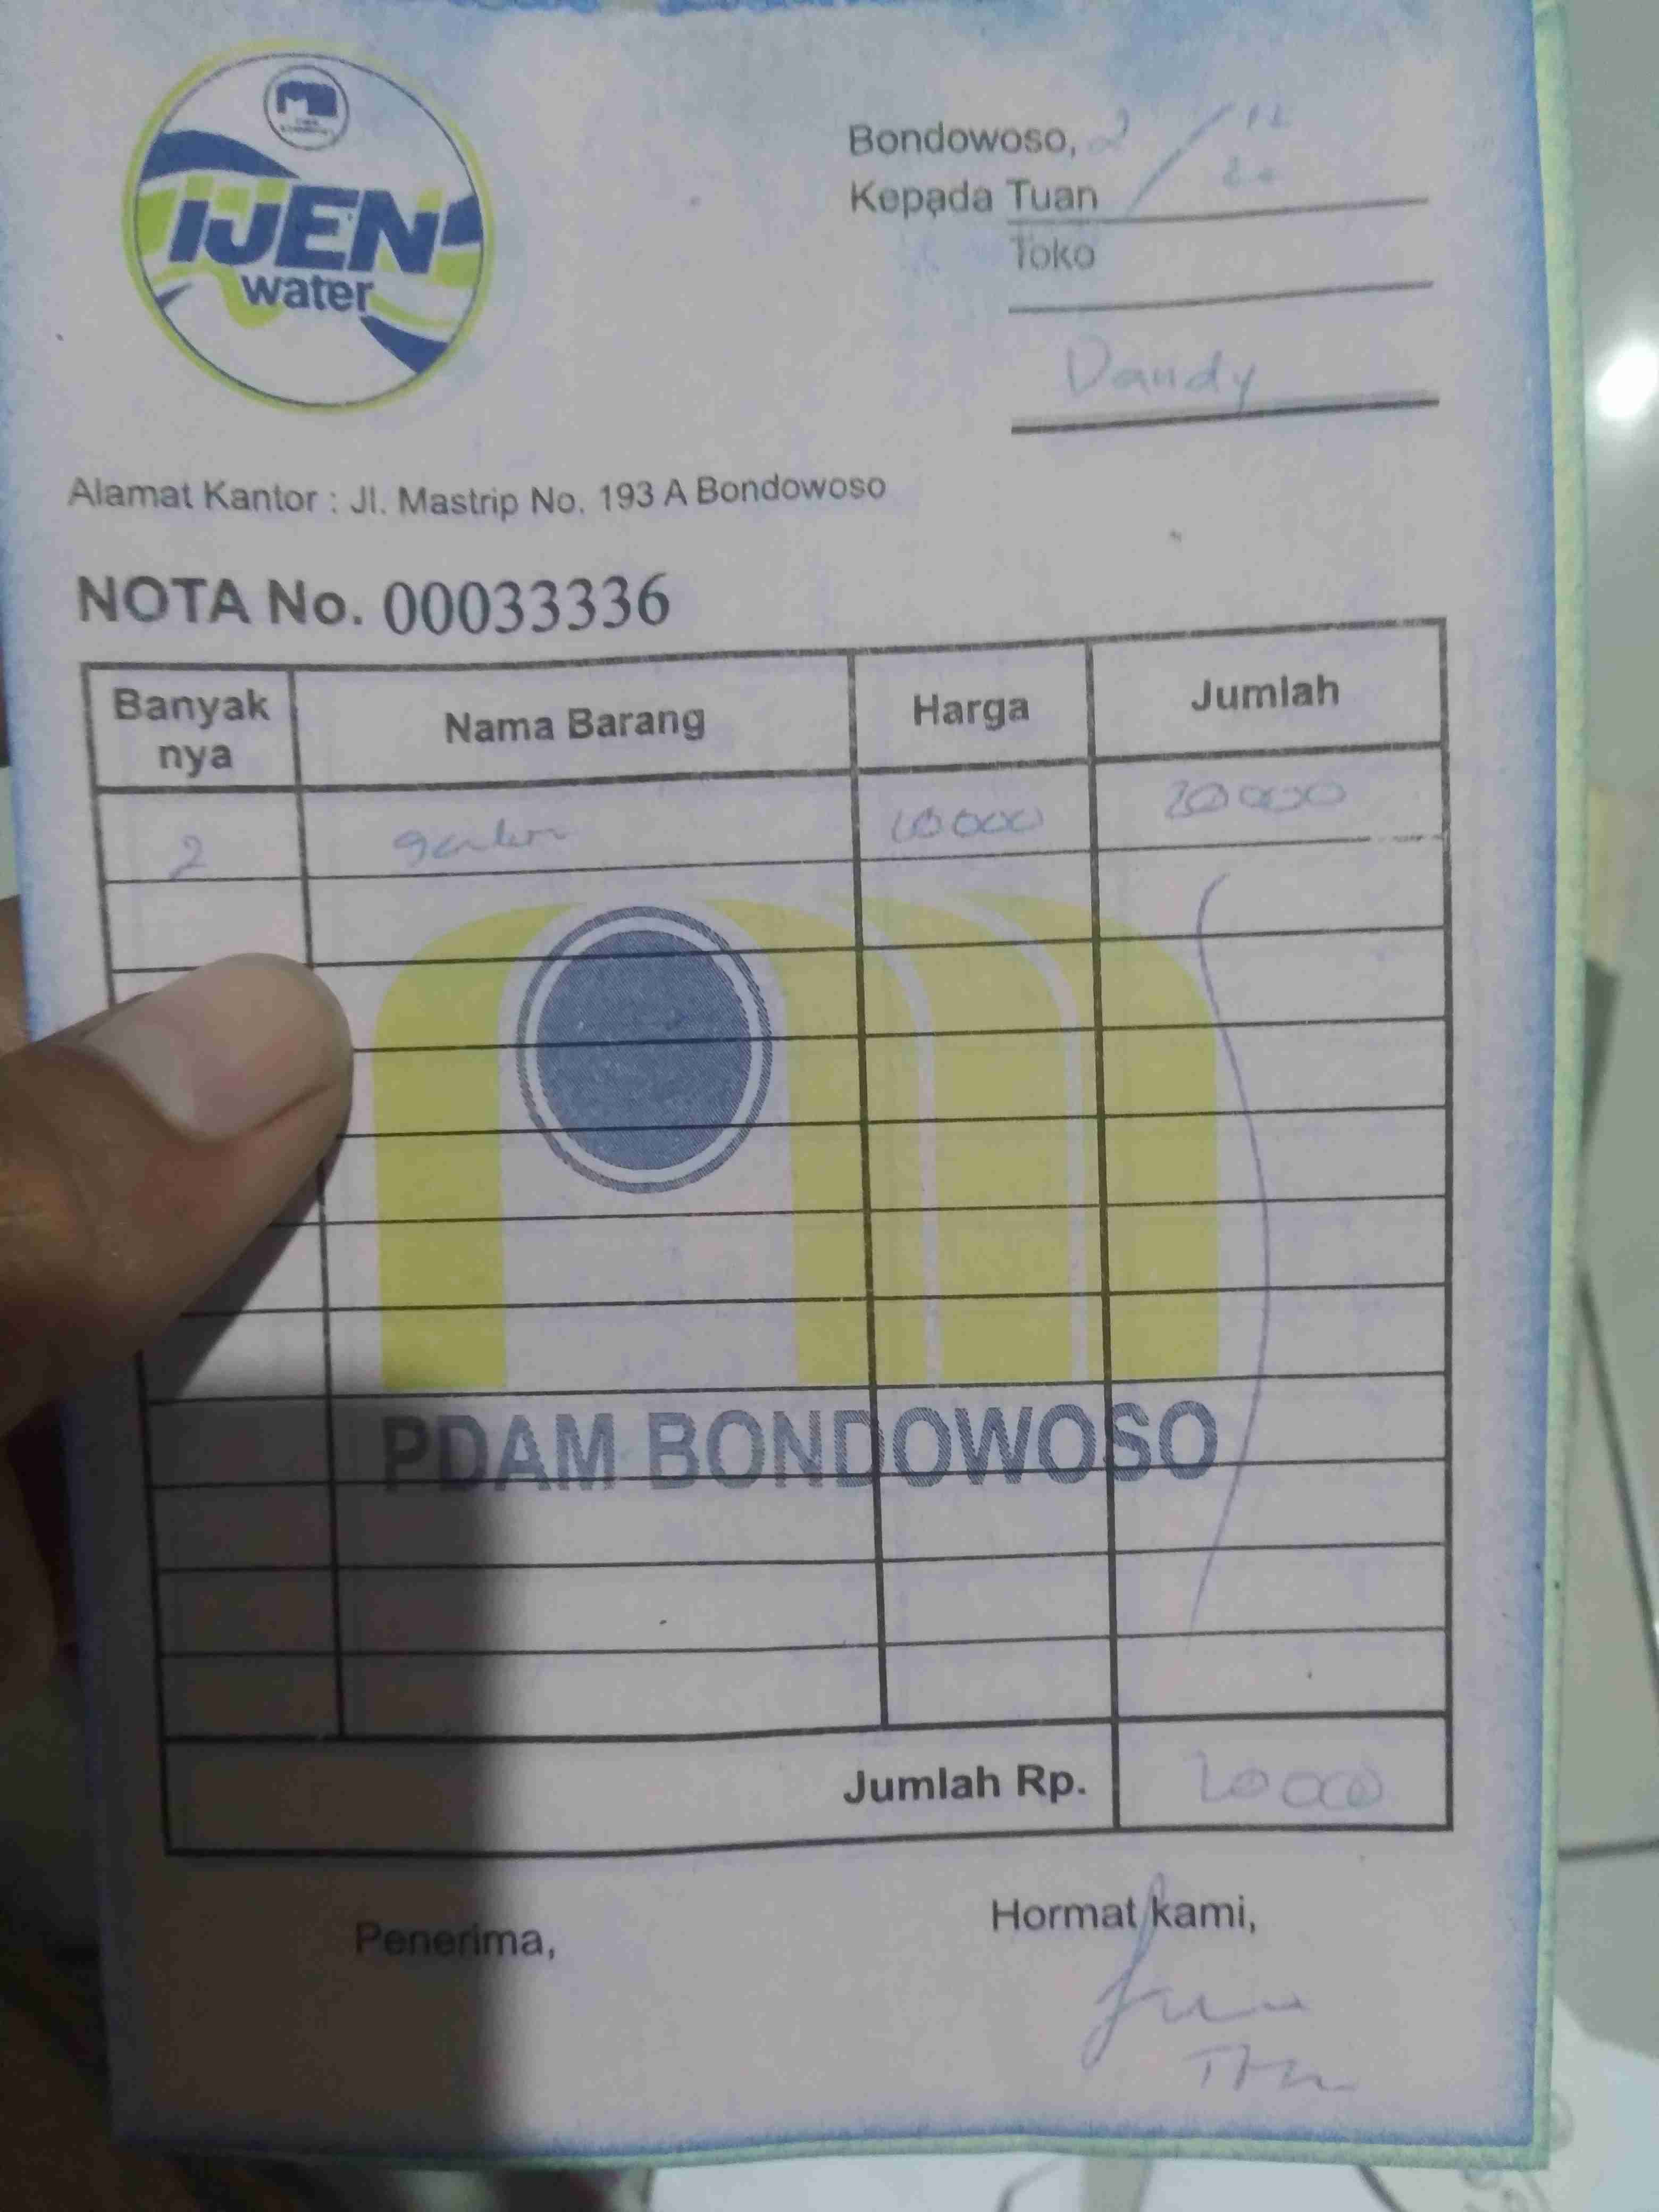 IJEN
water
Bondowoso, 2 / 12
20
Kepada Tuan
Toko
Dandy
Alamat Kantor : Jl. Mastrip No. 193 A Bondowoso
NOTA No. 00033336
Banyak nya Nama Barang Harga Jumlah
2 galon 10000 20000
PDAM BONDOWOSO
Jumlah Rp. 20000
Penerima, Hormat kami,